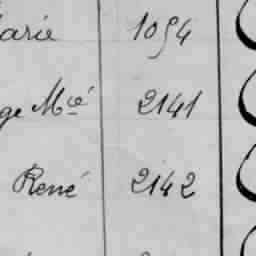 arie 1054
ge Mcé 2141
René 2142